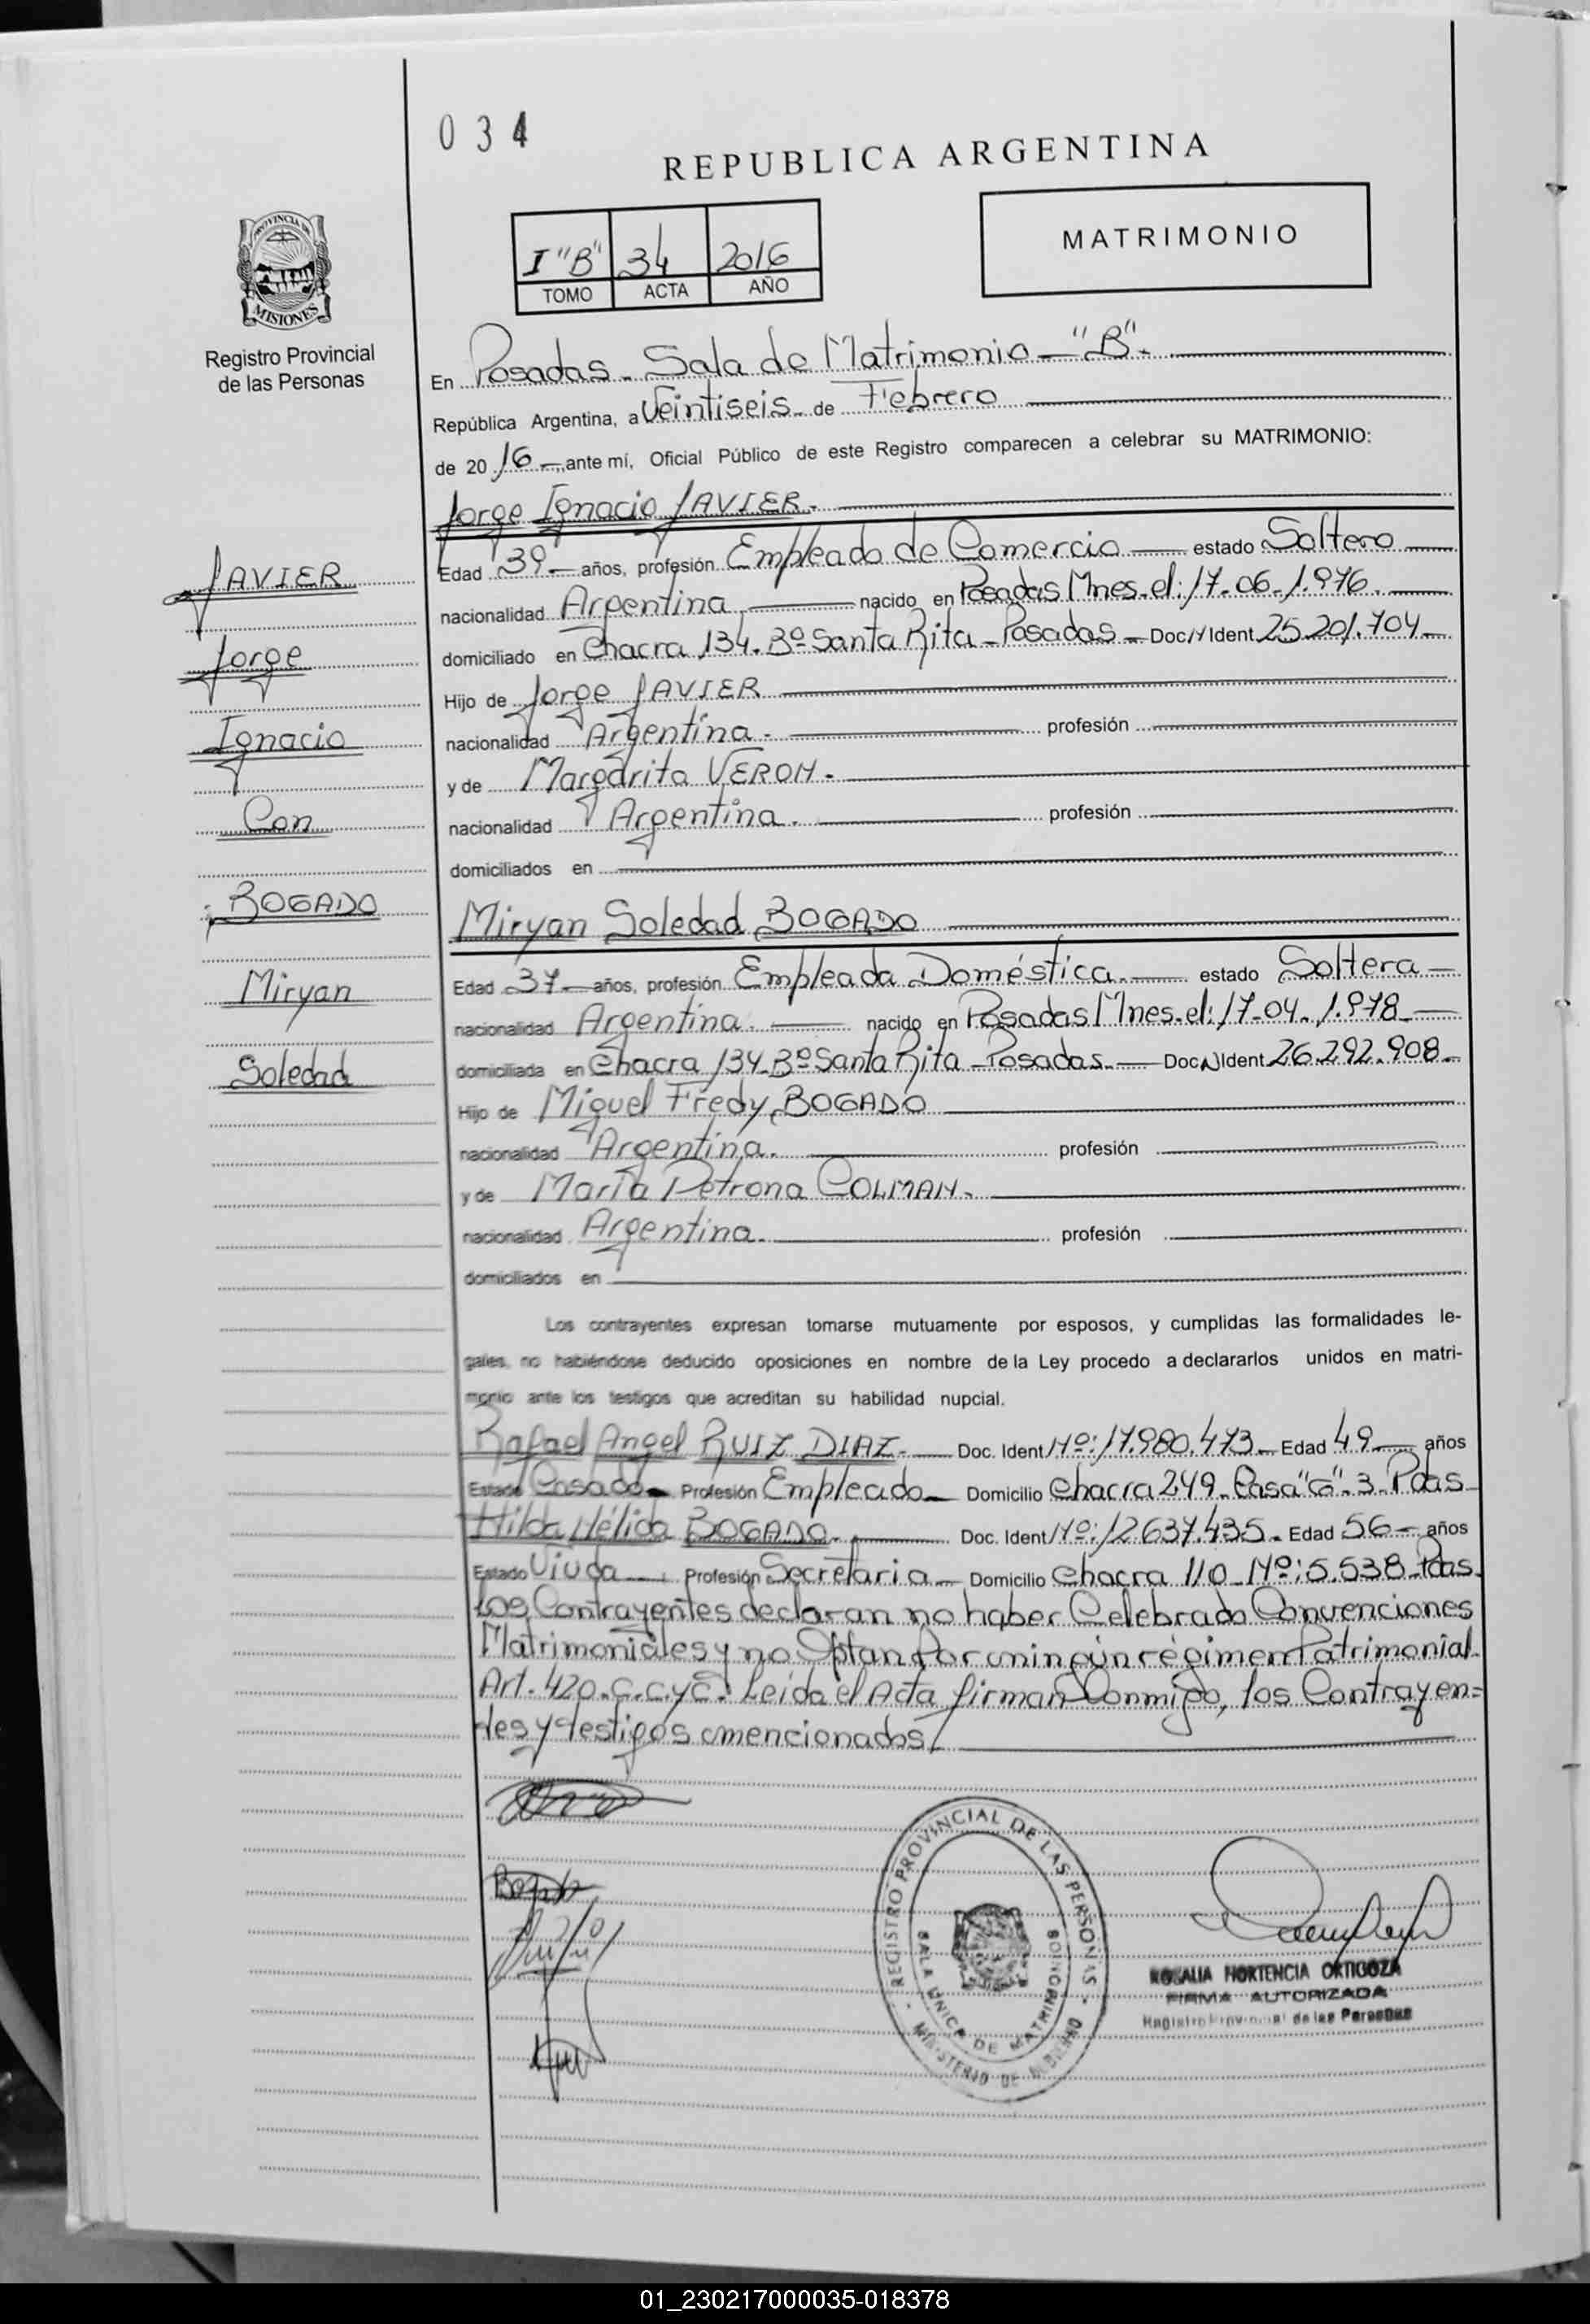 034
REPUBLICA ARGENTINA
PROVINCIA DE
MISIONES
Registro Provincial
de las Personas
I "B" 34 2016
TOMO ACTA AÑO
MATRIMONIO
En Posadas - Sala de Matrimonio - "B".
República Argentina, a Veintiseis - de Febrero
de 20 16 - , ante mí, Oficial Público de este Registro comparecen a celebrar su MATRIMONIO:
Jorge Ignacio JAVIER.
Edad 39 años, profesión Empleado de Comercio estado Soltero
nacionalidad Argentina nacido en Posadas Mnes. el: 17-06-1.976.
domiciliado en Chacra 134. Bº Santa Rita - Posadas - Doc. N Ident 25.201.704
Hijo de Jorge JAVIER
nacionalidad Argentina. profesión
y de Margarita VERON.
nacionalidad Argentina. profesión
domiciliados en
Miryan Soledad BOGADO
Edad 37 años, profesión Empleada Doméstica. estado Soltera
nacionalidad Argentina. nacido en Posadas Mnes. el: 17-04-1.978
domiciliada en Chacra 134 - Bº Santa Rita - Posadas. Doc. N Ident 26.292.908
Hijo de Miguel Fredy BOGADO
nacionalidad Argentina. profesión
y de María Petrona COLMAN.
nacionalidad Argentina. profesión
domiciliados en
JAVIER
Jorge
Ignacio
Con
BOGADO
Miryan
Soledad
Los contrayentes expresan tomarse mutuamente por esposos, y cumplidas las formalidades le-
gales, no habiéndose deducido oposiciones en nombre de la Ley procedo a declararlos unidos en matri-
monio ante los testigos que acreditan su habilidad nupcial.
Rafael Angel RUIZ DIAZ. Doc. Ident Nº: 17.980.473 Edad 49 años
Estado Casado Profesión Empleado Domicilio Chacra 249 - Casa "G" - 3 - Pdas
Hilda Nélida BOGADO. Doc. Ident Nº: 12.637.435 Edad 56 años
Estado Viuda Profesión Secretaria Domicilio Chacra 110 - Nº: 5.538 - Pdas.
Los Contrayentes declaran no haber Celebrado Convenciones
Matrimoniales y no Optan Por uningún régimen Patrimonial
Art. 420. C.C.yC. Leída el Acta firman Conmigo, los Contrayen=
tes y testigos mencionados
REGISTRO PROVINCIAL DE LAS PERSONAS
SALA UNICA DE MATRIMONIOS
MINISTERIO DE GOBIERNO
ROSALIA HORTENCIA ORTIGOZA
FIRMA AUTORIZADA
Registro Provincial de las Personas
01_230217000035-018378